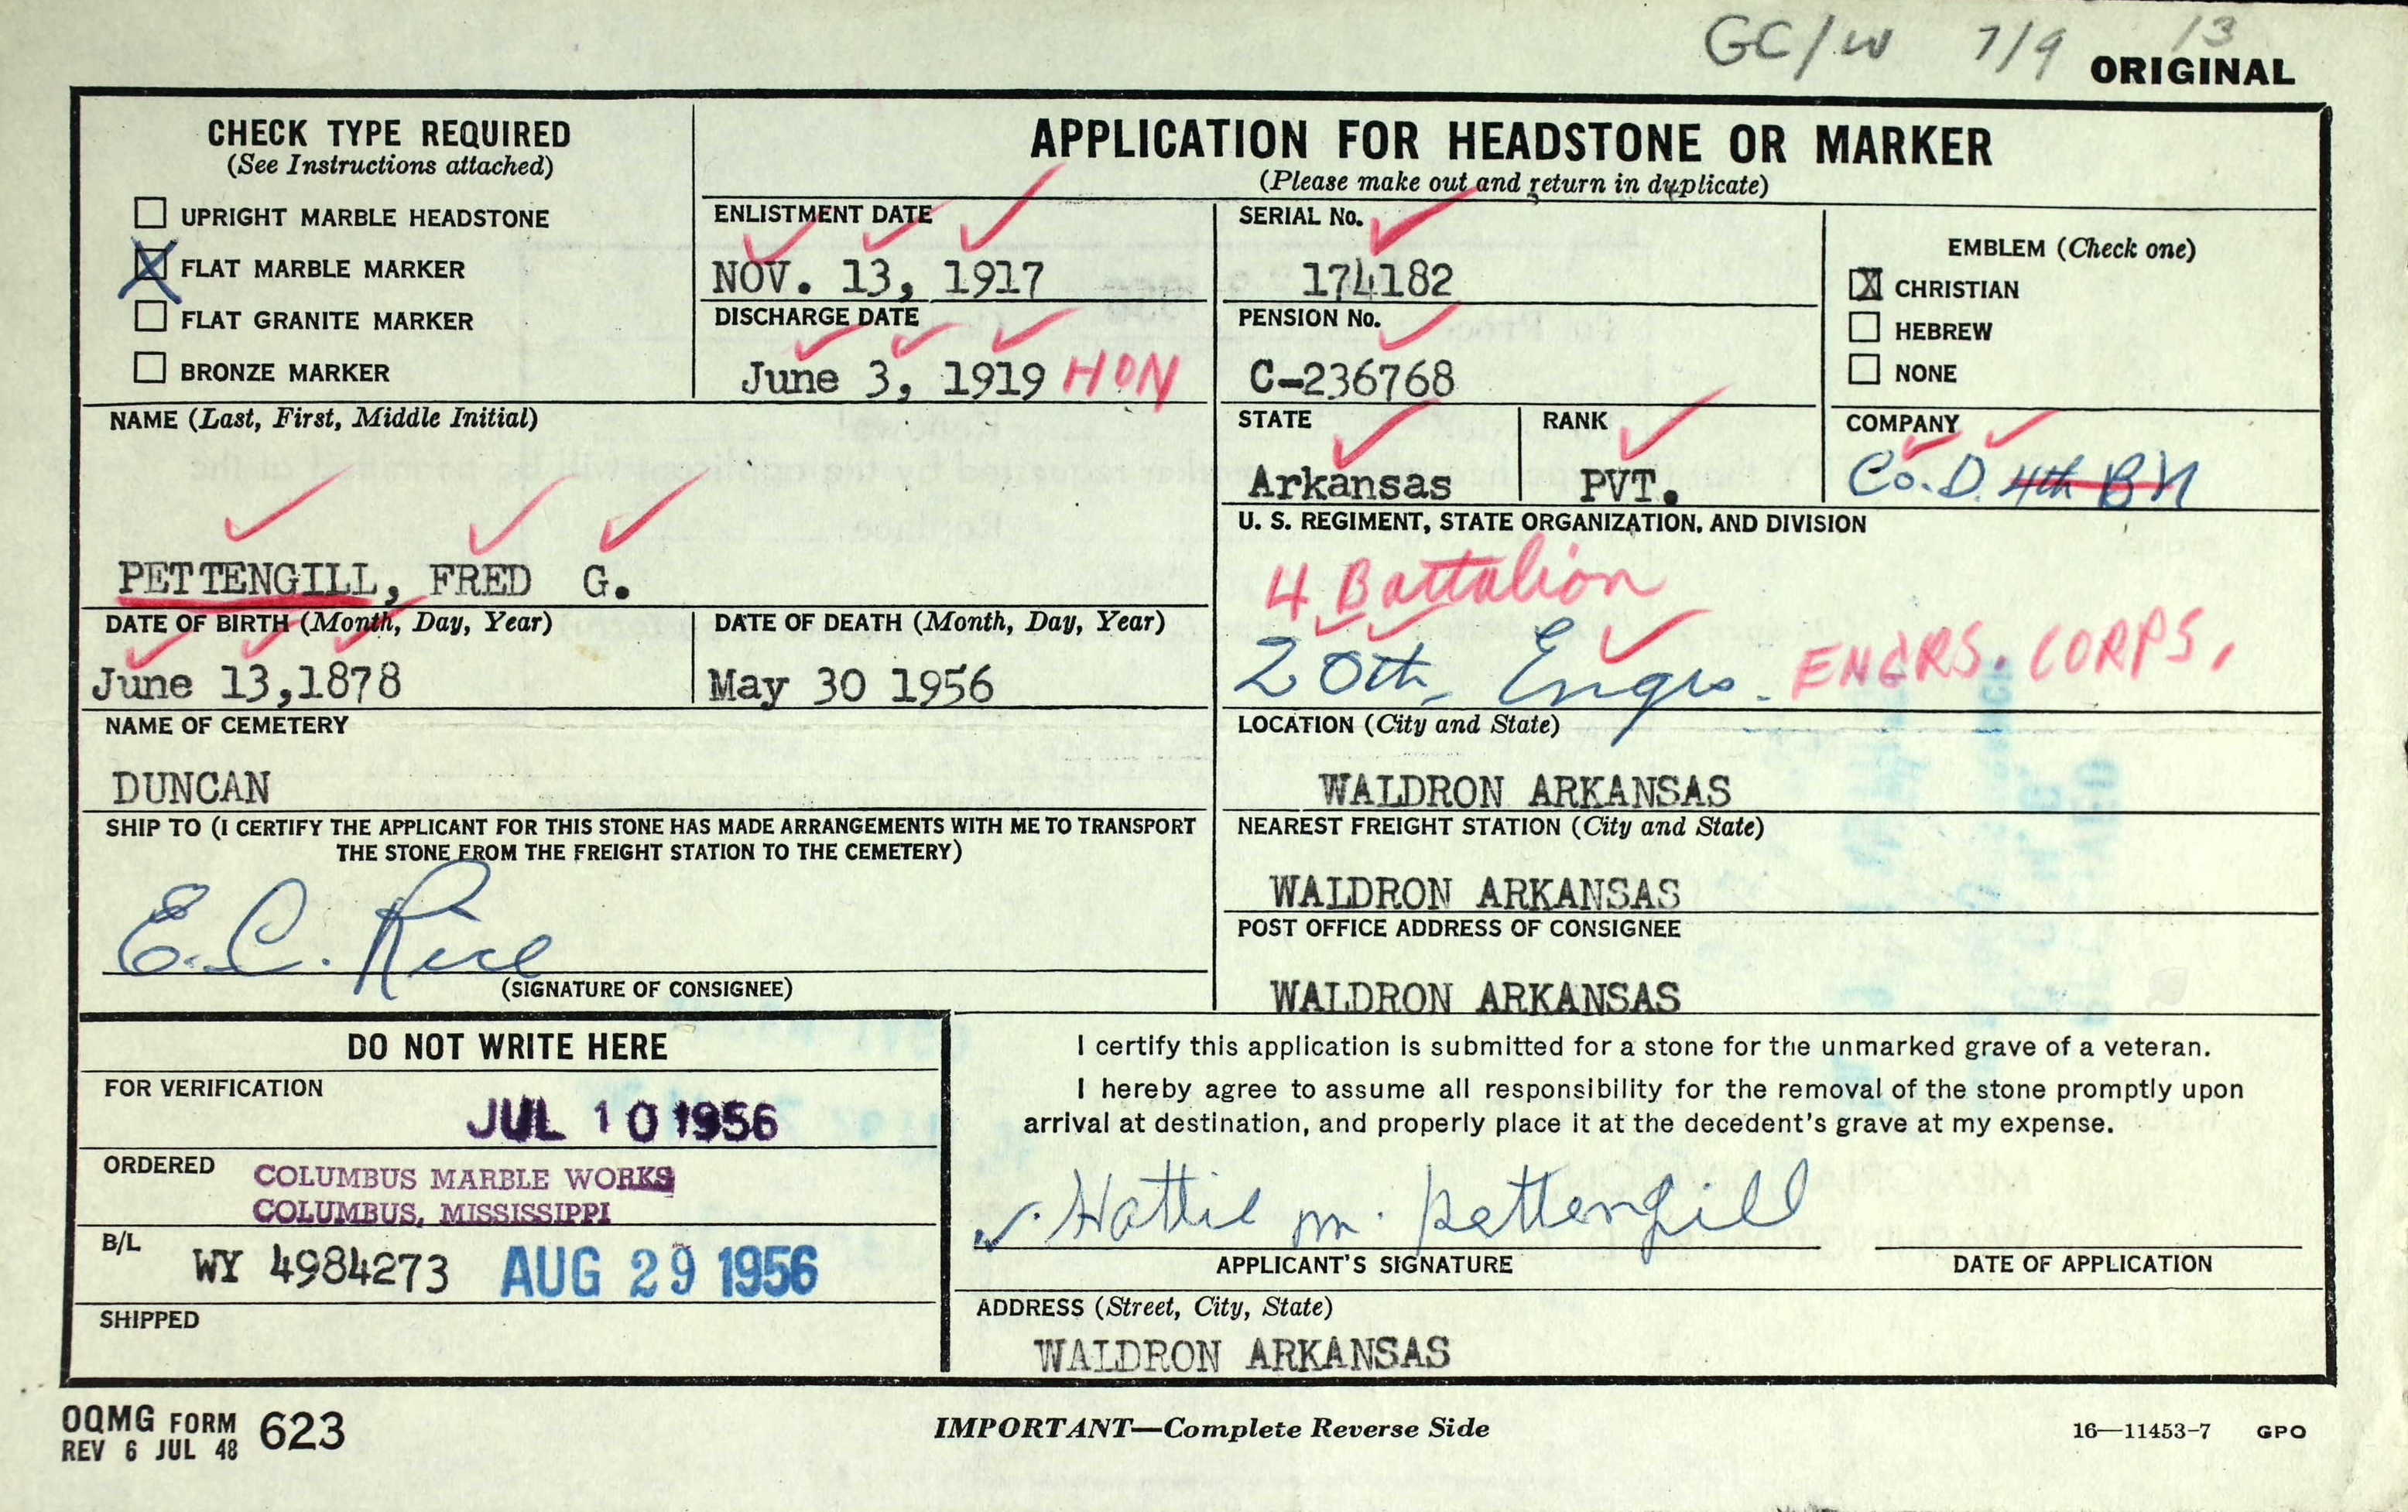 GC/W 7/9 13
ORIGINAL
CHECK TYPE REQUIRED
(See Instructions attached)
UPRIGHT MARBLE HEADSTONE
FLAT MARBLE MARKER
FLAT GRANITE MARKER
BRONZE MARKER
APPLICATION FOR HEADSTONE OR MARKER
(Please make out and return in duplicate)
ENLISTMENT DATE
NOV. 13, 1917
DISCHARGE DATE
June 3, 1919 HON
SERIAL No.
174182
PENSION No.
C-236768
EMBLEM (Check one)
X CHRISTIAN
HEBREW
NONE
NAME (Last, First, Middle Initial)
PETTENGILL, FRED G.
STATE
Arkansas
RANK
PVT.
COMPANY
Co. D. 4th BN
U. S. REGIMENT, STATE ORGANIZATION, AND DIVISION
4 Battalion
20th Engrs. ENGRS. CORPS,
DATE OF BIRTH (Month, Day, Year)
June 13,1878
DATE OF DEATH (Month, Day, Year)
May 30 1956
NAME OF CEMETERY
DUNCAN
LOCATION (City and State)
WALDRON ARKANSAS
SHIP TO (I CERTIFY THE APPLICANT FOR THIS STONE HAS MADE ARRANGEMENTS WITH ME TO TRANSPORT
THE STONE FROM THE FREIGHT STATION TO THE CEMETERY)
E. C. Rice
(SIGNATURE OF CONSIGNEE)
NEAREST FREIGHT STATION (City and State)
WALDRON ARKANSAS
POST OFFICE ADDRESS OF CONSIGNEE
WALDRON ARKANSAS
DO NOT WRITE HERE
FOR VERIFICATION
JUL 10 1956
ORDERED
COLUMBUS MARBLE WORKS
COLUMBUS, MISSISSIPPI
B/L
WY 4984273 AUG 29 1956
SHIPPED
I certify this application is submitted for a stone for the unmarked grave of a veteran.
I hereby agree to assume all responsibility for the removal of the stone promptly upon
arrival at destination, and properly place it at the decedent's grave at my expense.
Hattie M. Pettengill
APPLICANT'S SIGNATURE
DATE OF APPLICATION
ADDRESS (Street, City, State)
WALDRON ARKANSAS
OQMG FORM 623
REV 6 JUL 48
IMPORTANT—Complete Reverse Side
16—11453-7 GPO